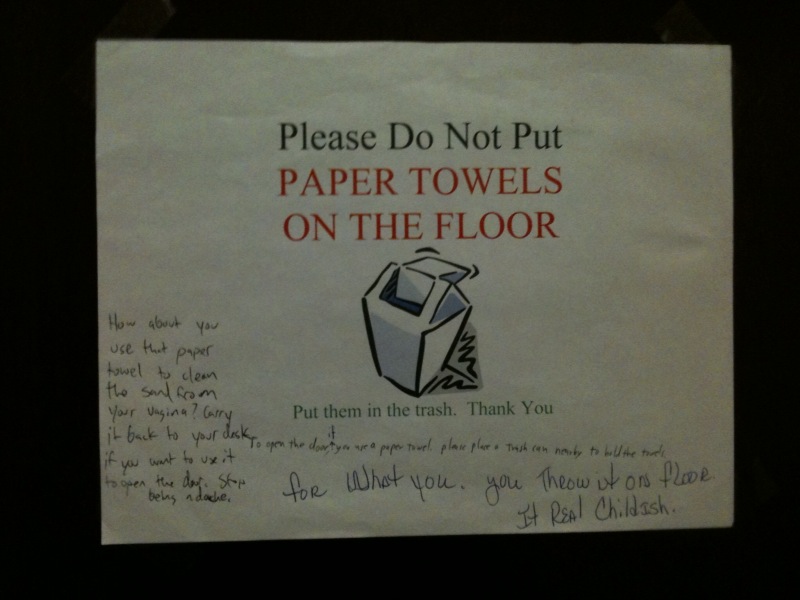 Please Do Not Put
PAPER TOWELS
ON THE FLOOR
Put them in the trash. Thank You
How about you
use that paper
towel to clean
the sand from
your vagina? Carry
it back to your desk
if you want to use it
to open the door. Stop
being a
To open the door, if you use a paper towel. please place a trash can nearby to hold the towels
for What you. you Throw it on floor.
It Real Childish.